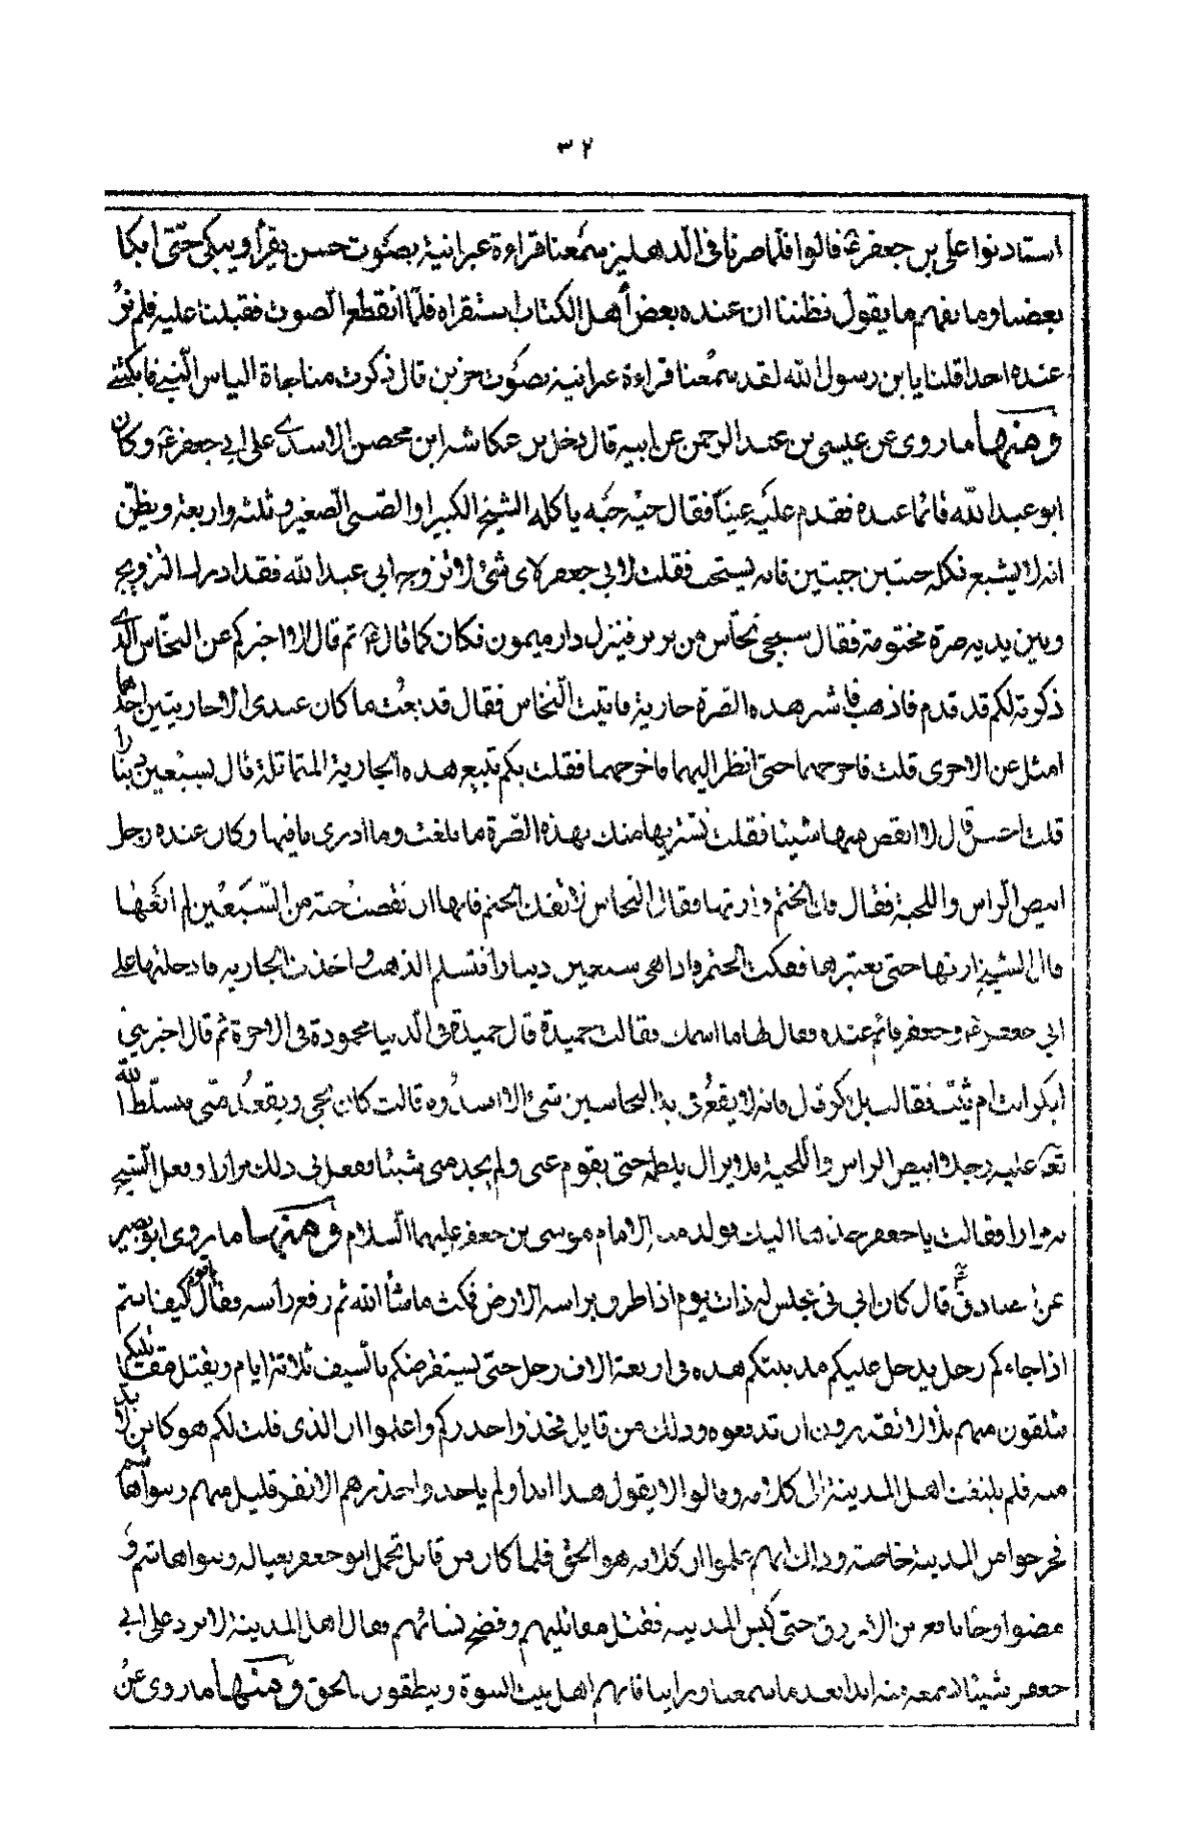 ٣٢
استاذنوا على بن جعفر ع قالوا فلما صرنا فى الدهليز سمعنا قراءة عبرانية بصوت حسن يقرأ ويبكى حتى ابكا
بعضنا وما نفهم ما يقول فظننا ان عنده بعض أهل الكتاب استقراه فلما انقطع الصوت فقبلنا عليه فلم نر
عنده احدا قلنا يا بن رسول الله لقد سمعنا قراءة عبرانية بصوت حزين قال ذكرت مناجاة الياس النبى فابكتنى
ومنها ما روى عن عيسى بن عبد الرحمن عن ابيه قال دخل بن عكاشه ابن محصن الاسدى على ابى جعفر ع وكان
ابو عبد الله قائما عنده فقدم عليه عنبا فقال حبه حبه ياكله الشيخ الكبير او الصبى الصغير وثلثه واربعة ويظن
انه لا يشبع فكله حبتين حبتين فانه يستحب فقلت لابى جعفر لاى شئ لا تزوجه ابى عبد الله فقد ادرك التزويج
وبين يديه صرة مختومة فقال سيجى نخاس من بربر فينزل دار ميمون فكان كما قال ع ثم قال الا اخبركم عن النخاس الذى
ذكرته لكم قد قدم فاذهب فاشر هذه الصرة جارية فاتيت النخاس فقال قد بعت ما كان عندى الا جاريتين احدهما
امثل عن الاخرى قلت فاخرجهما حتى انظر اليهما فاخرجهما فقلت بكم تبيع هذه الجارية المتماثلة قال بسبعين دينارا
قلت احسن قال لا انقص منها شيئا فقلت نشتريها منك بهذه الصرة ما بلغت وما ادرى ما فيها وكان عنده رجل
ابيض الراس واللحية فقال فك الختم وزنها فقال النخاس لا تفك الختم فانها ان نقصت حبة من السبعين لم ابعها
قال الشيخ زنها حتى نعتبرها ففكت الختم واذا هى سبعين دينارا فتسلم الذهب واخذت الجاريه فادخلتها على
ابى جعفر ع وجعفر قائم عنده فقال لها ما اسمك فقالت حميدة قال حميدة فى الدنيا محمودة فى الاخرة ثم قال اخبرينى
ابكر انت ام ثيب فقالت بل بكر قال فانه لا يقع فى يد النخاسين شئ الا افسدوه قالت كان يجى ويقعد منى فسلط الله
تعه عليه رجلا ابيض الراس واللحية فلا يزال يلطمه حتى يقوم عنى ولم يجد منى شيئا ففعل بى ذلك مرارا وفعل الشيخ
به مرارا فقالت يا جعفر خذها اليك فولدت الامام موسى بن جعفر عليهما السلام ومنها ما روى ابو بصير
عن الصادق ع قال كان ابى فى مجلس له ذات يوم اذ اطرق براسه الارض فمكث ما شأ الله ثم رفع راسه وقال يا قوم كيف انتم
اذا جاءكم رجل يدخل عليكم مدينتكم هذه فى اربعة الاف رجل حتى يستقرضكم بالسيف ثلاثة ايام ويقتل مقاتليكم
فتلقون منهم بلا لا تقدرون ان تدفعوه وذلك من قابل فخذوا حذركم واعلموا ان الذى قلت لكم هو كاين لا بد
منه فلم يلتفت اهل المدينة الى كلامه وقالوا لا يقول هذا ابدا ولم ياخذوا حذرهم الا نفر قليل منهم وبنوا هاشم
فخرجوا من المدينة خاصة وذلك انهم علموا ان كلامه هو الحق فلما كان من قابل تحمل ابو جعفر بعياله وبنوا هاشم و
مضوا وجا نافع بن الازرق حتى كبس المدينه فقتل مقاتليهم وفضح نسائهم فقال اهل المدينة لا نرد على ابى
جعفر شيئا نسمعه منه ابدا بعد ما سمعنا وراينا فانهم اهل بيت النبوة وينطقون بالحق ومنها ما روى عن